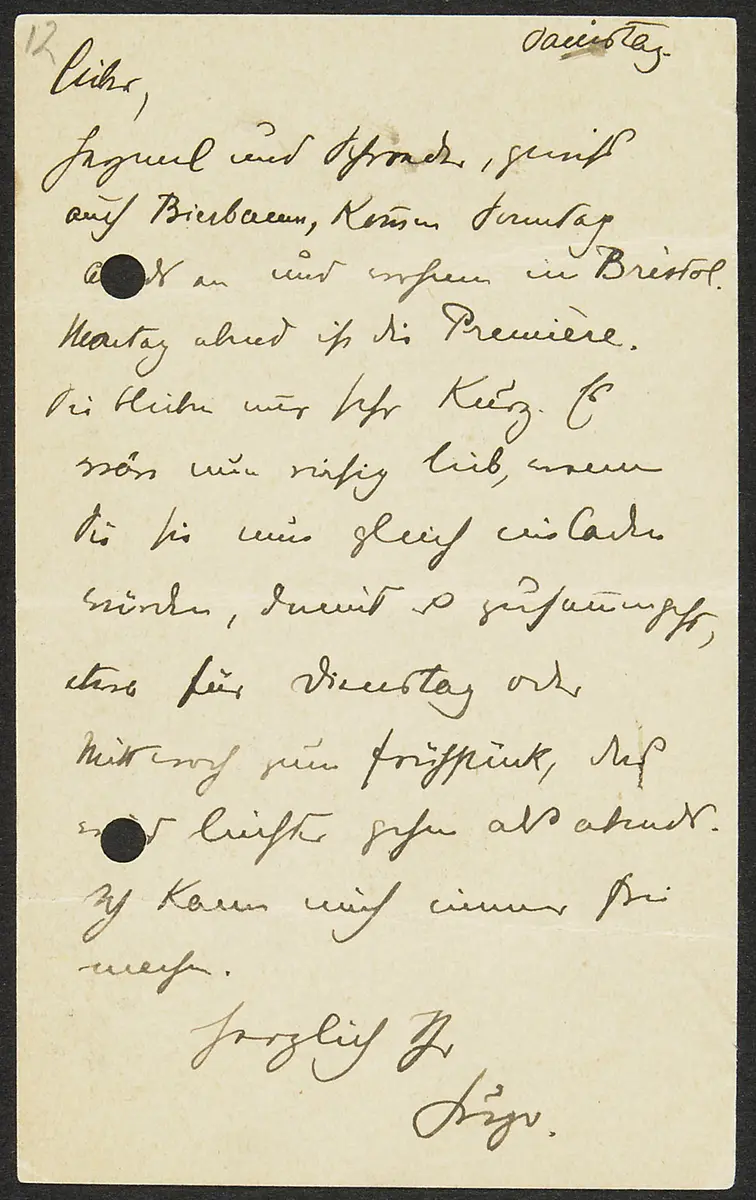 12
Samstag.
lieber,
Heymel und Schroeder, gewiss
auch Bierbaum, kommen Sonntag
abends an und wohnen im Bristol.
Montag abend ist die Première.
Sie bleiben nur sehr kurz. Es
wäre nun riesig lieb, wenn
Sie sie gleich einladen
würden, damit es zusammengeht,
etwa für Dienstag oder
Mittwoch zum Frühstück, das
wird leichter gehen als abends.
Ich kann mich immer frei
machen.
Herzlich Ihr
Hugo.